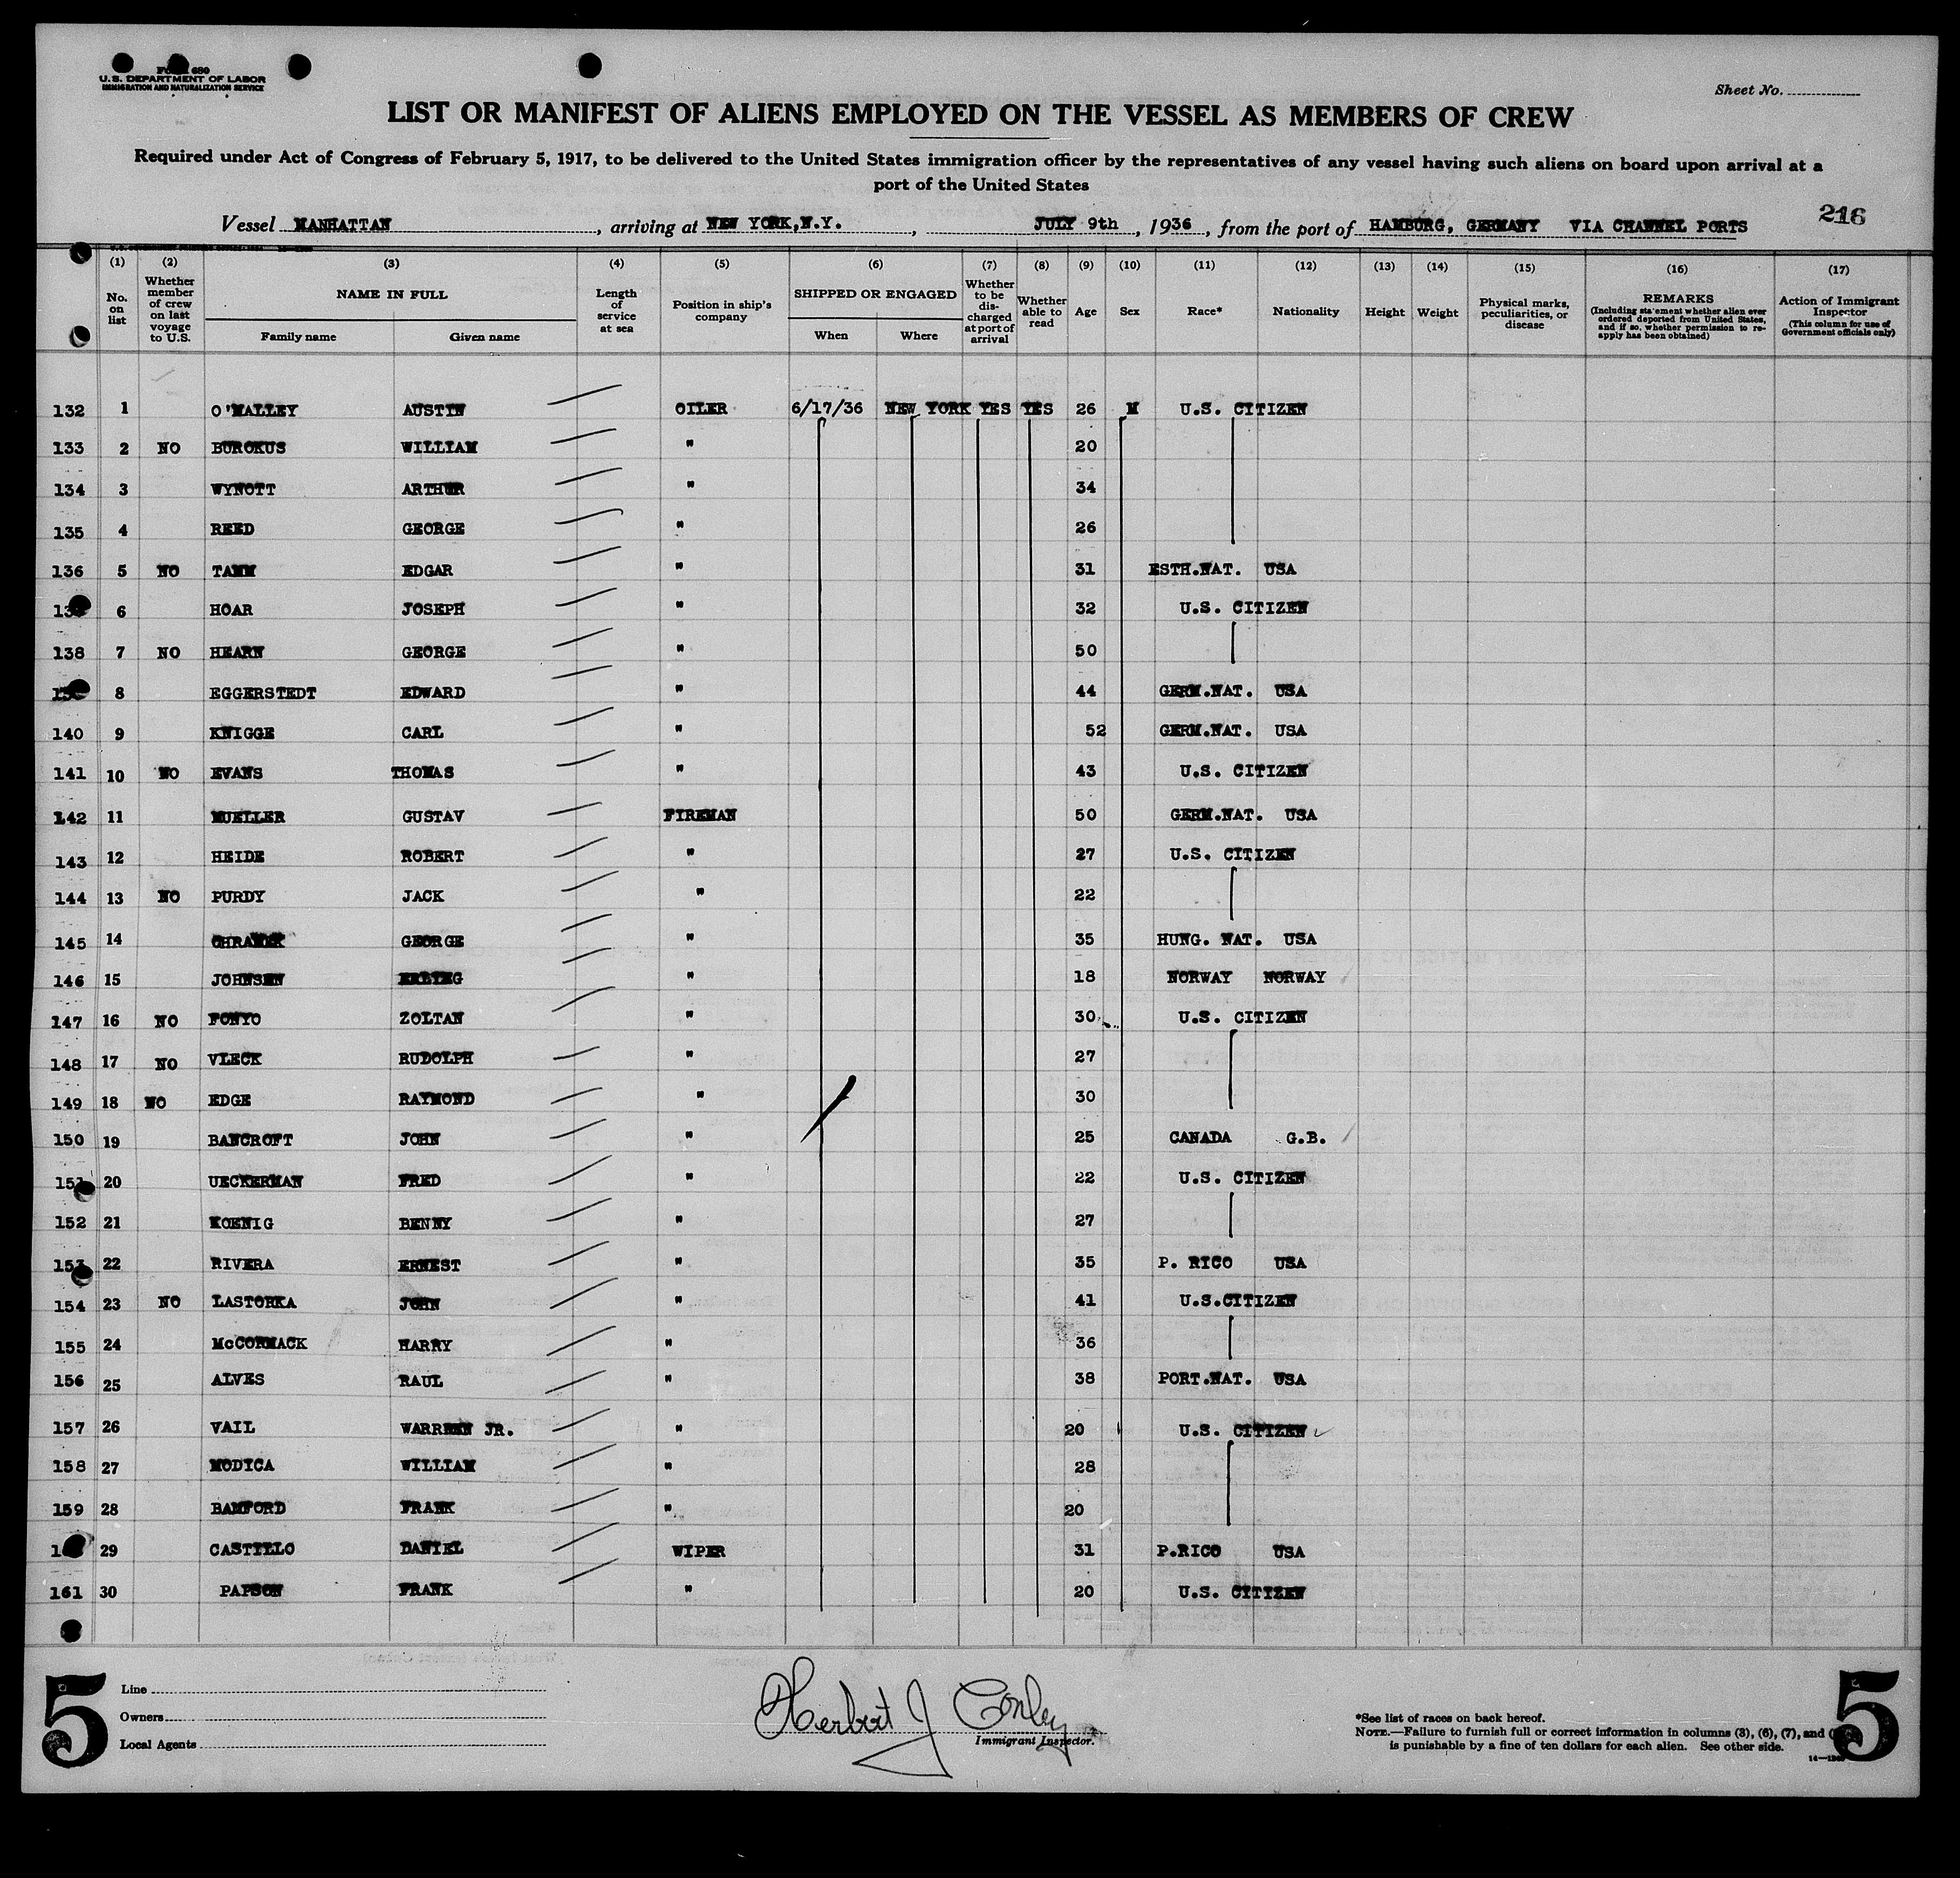 Form 680
U.S. DEPARTMENT OF LABOR
IMMIGRATION AND NATURALIZATION SERVICE
Sheet No.
LIST OR MANIFEST OF ALIENS EMPLOYED ON THE VESSEL AS MEMBERS OF CREW
Required under Act of Congress of February 5, 1917, to be delivered to the United States immigration officer by the representatives of any vessel having such aliens on board upon arrival at a
port of the United States
216
Vessel MANHATTAN, arriving at NEW YORK,N.Y., JULY 9th, 1936, from the port of HAMBURG, GERMANY VIA CHANNEL PORTS
(1) No. on list
(2) Whether member of crew on last voyage to U.S.
(3) NAME IN FULL
Family name Given name
(4) Length of service at sea
(5) Position in ship's company
(6) SHIPPED OR ENGAGED
When Where
(7) Whether to be dis-charged at port of arrival
(8) Whether able to read
(9) Age
(10) Sex
(11) Race*
(12) Nationality
(13) Height
(14) Weight
(15) Physical marks, peculiarities, or disease
(16) REMARKS
(Including statement whether alien ever ordered deported from United States, and if so, whether permission to re-apply has been obtained)
(17) Action of Immigrant Inspector
(This column for use of Government officials only)
132 1 O'MALLEY AUSTIN OILER 6/17/36 NEW YORK YES YES 26 M U.S. CITIZEN
133 2 NO BUROKUS WILLIAM " 20
134 3 WYNOTT ARTHUR " 34
135 4 REED GEORGE " 26
136 5 NO TAMM EDGAR " 31 ESTH.NAT. USA
6 HOAR JOSEPH " 32 U.S. CITIZEN
138 7 NO HEARN GEORGE " 50
8 EGGERSTEDT EDWARD " 44 GERM.NAT. USA
140 9 KNIGGE CARL " 52 GERM.NAT. USA
141 10 NO EVANS THOMAS " 43 U.S. CITIZEN
142 11 MUELLER GUSTAV FIREMAN 50 GERM.NAT. USA
143 12 HEIDE ROBERT " 27 U.S. CITIZEN
144 13 NO PURDY JACK " 22
145 14 GEORGE " 35 HUNG. NAT. USA
146 15 JOHNSEN ERLING " 18 NORWAY NORWAY
147 16 NO FONYO ZOLTAN " 30 U.S. CITIZEN
148 17 NO VLECK RUDOLPH " 27
149 18 NO EDGE RAYMOND " 30
150 19 BANCROFT JOHN " 25 CANADA G.B.
151 20 UECKERMAN FRED " 22 U.S. CITIZEN
152 21 KOENIG BENNY " 27
153 22 RIVERA ERNEST " 35 P. RICO USA
154 23 NO LASTORKA JOHN " 41 U.S.CITIZEN
155 24 McCORMACK HARRY " 36
156 25 ALVES RAUL " 38 PORT.NAT. USA
157 26 VAIL WARREN JR. " 20 U.S. CITIZEN
158 27 MODICA WILLIAM " 28
159 28 BAMFORD FRANK " 20
29 CASTILLO DANIEL WIPER 31 P.RICO USA
161 30 PAPSON FRANK " 20 U.S. CITIZEN
5
Line
Owners
Local Agents
Herbert J Conley
Immigrant Inspector.
*See list of races on back hereof.
NOTE.—Failure to furnish full or correct information in columns (3), (6), (7), and
is punishable by a fine of ten dollars for each alien. See other side.
5